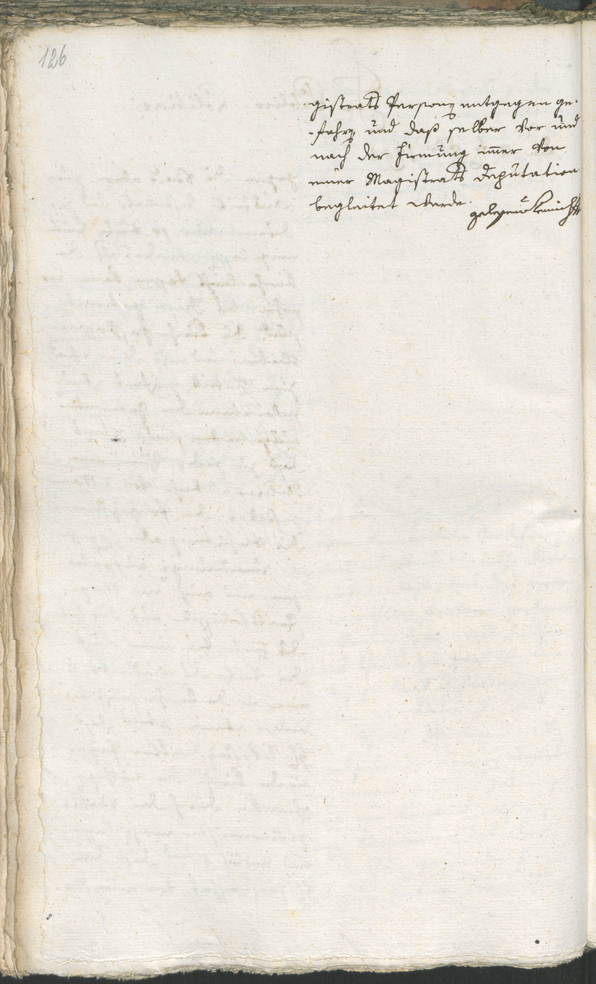 126
gistrats Persohn entgegen ge-
fahrn und daß selber vor und
nach der Firmung im̄er von
einer Magistrats Deputation
begleitet werde.